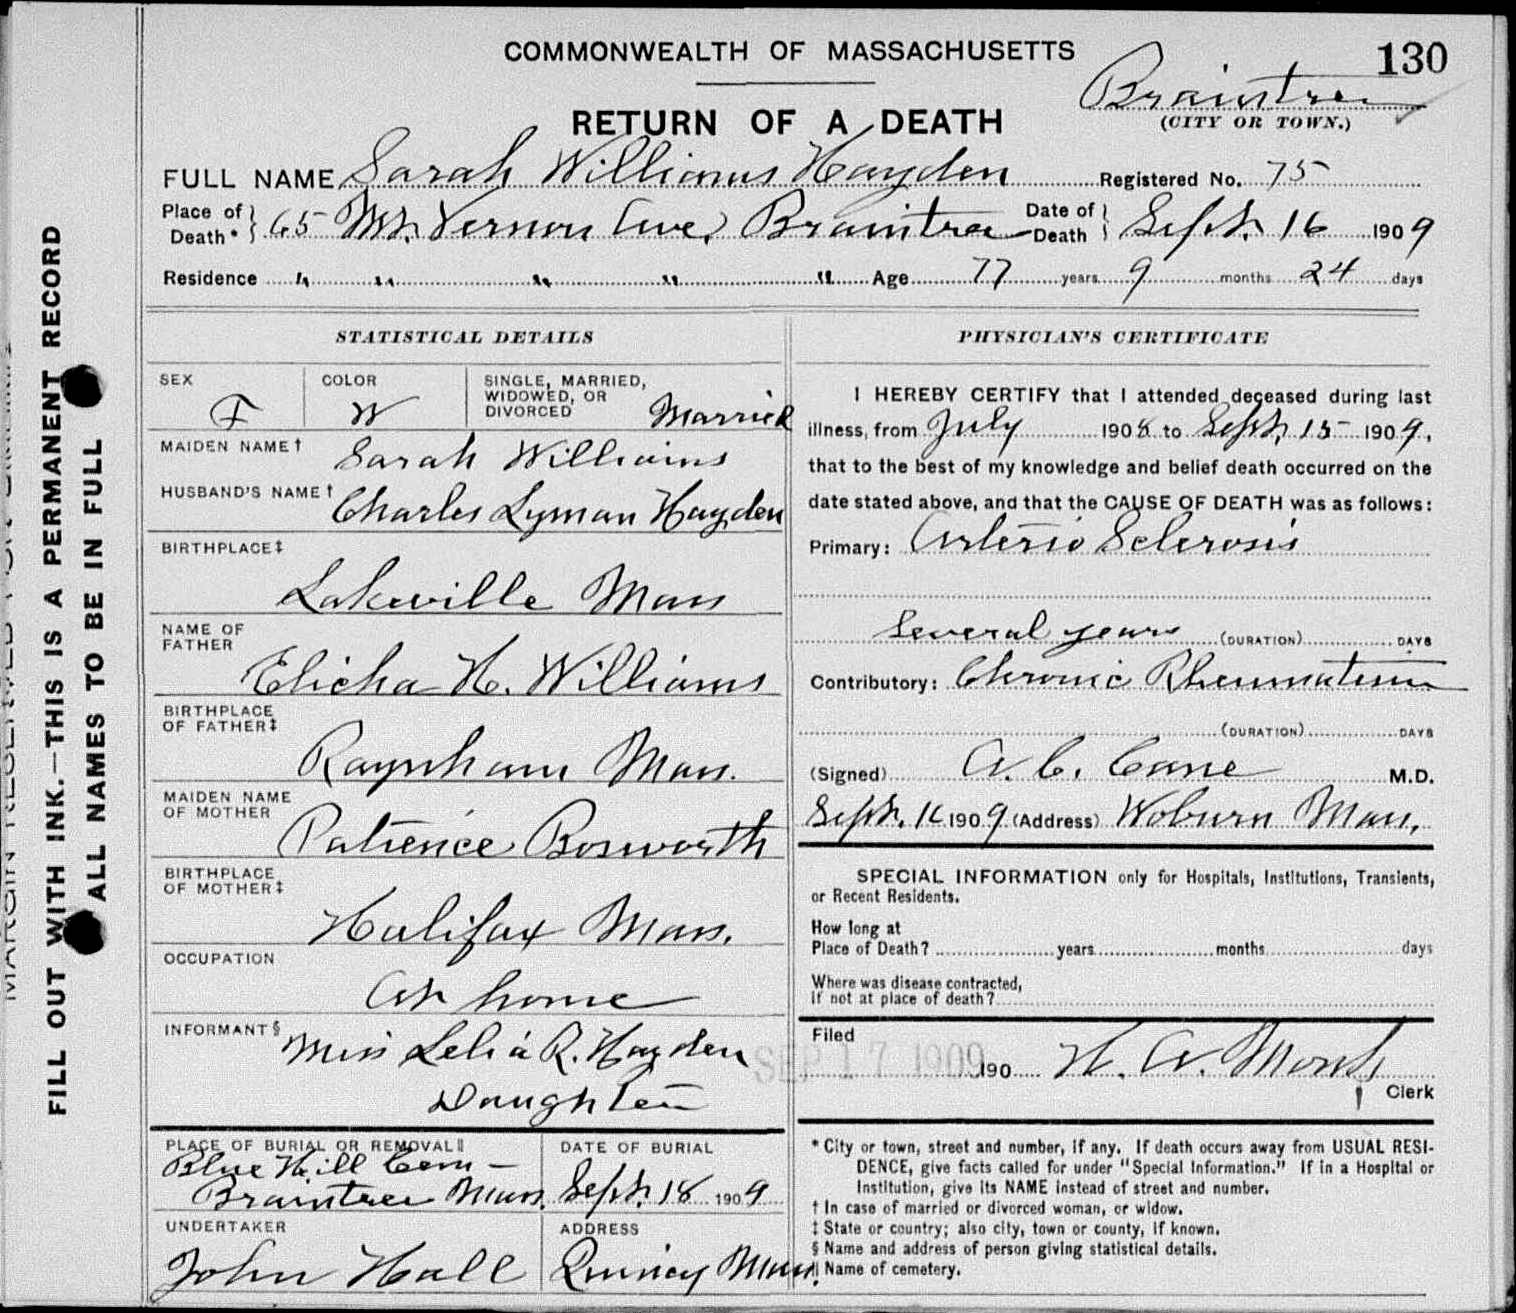 COMMONWEALTH OF MASSACHUSETTS
130
Braintree
(CITY OR TOWN.)
RETURN OF A DEATH
FULL NAME Sarah Williams Hayden Registered No. 75
Place of Death* 65 Mt. Vernon Ave, Braintree Date of Death Sept. 16 1909
Residence " " " " " Age 77 years 9 months 24 days
STATISTICAL DETAILS
SEX F COLOR W SINGLE, MARRIED, WIDOWED, OR DIVORCED Married
MAIDEN NAME† Sarah Williams
HUSBAND'S NAME† Charles Lyman Hayden
BIRTHPLACE‡
Lakeville Mass
NAME OF FATHER
Elicha H. Williams
BIRTHPLACE OF FATHER‡
Raynham Mass.
MAIDEN NAME OF MOTHER
Patience Bosworth
BIRTHPLACE OF MOTHER‡
Halifax Mass.
OCCUPATION
At home
INFORMANT§ Miss Lelia R. Hayden
Daughter
PLACE OF BURIAL OR REMOVAL‖
Blue Hill Cem -
Braintree Mass.
DATE OF BURIAL
Sept. 18 1909
UNDERTAKER
John Hall
ADDRESS
Quincy Mass.
PHYSICIAN'S CERTIFICATE
I HEREBY CERTIFY that I attended deceased during last
illness, from July 1908 to Sept. 15 1909,
that to the best of my knowledge and belief death occurred on the
date stated above, and that the CAUSE OF DEATH was as follows:
Primary: Arterio Sclerosis
Several years (DURATION) DAYS
Contributory: Chronic Rheumatism
(DURATION) DAYS
(Signed) A. C. Cane M.D.
Sept. 16 1909 (Address) Woburn Mass.
SPECIAL INFORMATION only for Hospitals, Institutions, Transients,
or Recent Residents.
How long at
Place of Death? years months days
Where was disease contracted,
If not at place of death?
Filed
SEP 17 1909 190 H. A. Clerk
* City or town, street and number, if any. If death occurs away from USUAL RESI-
DENCE, give facts called for under "Special Information." If in a Hospital or
Institution, give its NAME instead of street and number.
† In case of married or divorced woman, or widow.
‡ State or country; also city, town or county, if known.
§ Name and address of person giving statistical details.
‖ Name of cemetery.
FILL OUT WITH INK.—THIS IS A PERMANENT RECORD
ALL NAMES TO BE IN FULL